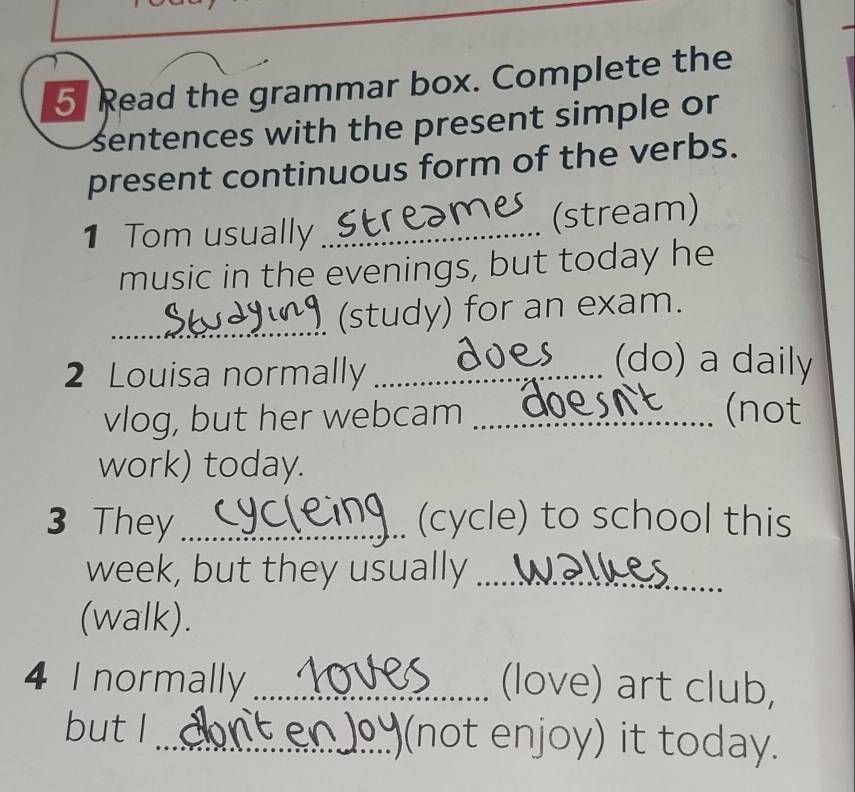 5 Read the grammar box. Complete the
sentences with the present simple or
present continuous form of the verbs.
1 Tom usually streames (stream)
music in the evenings, but today he
Studying (study) for an exam.
2 Louisa normally does (do) a daily
vlog, but her webcam doesn't (not
work) today.
3 They cycleing (cycle) to school this
week, but they usually walkes
(walk).
4 I normally loves (love) art club,
but I don't enjoy (not enjoy) it today.